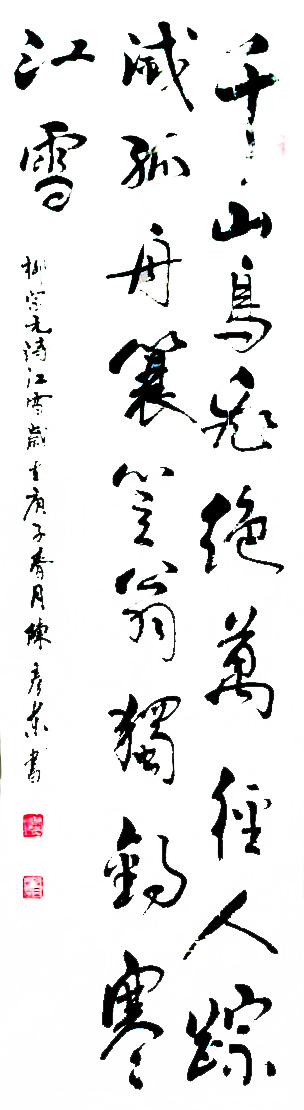 千山鳥飛絶萬徑人踪
滅孤舟蓑笠翁獨釣寒
江雪
柳宗元詩江雪歲在庚子春月陳彦東書